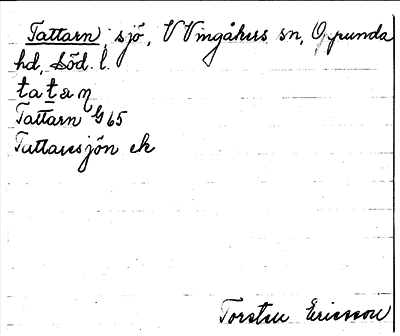 Tattarn, sjö, V Vingåkers sn, Oppunda
hd, Söd. l.
tatan
Tattarn G 65
Tattarsjön ek
Torsten Ericsson